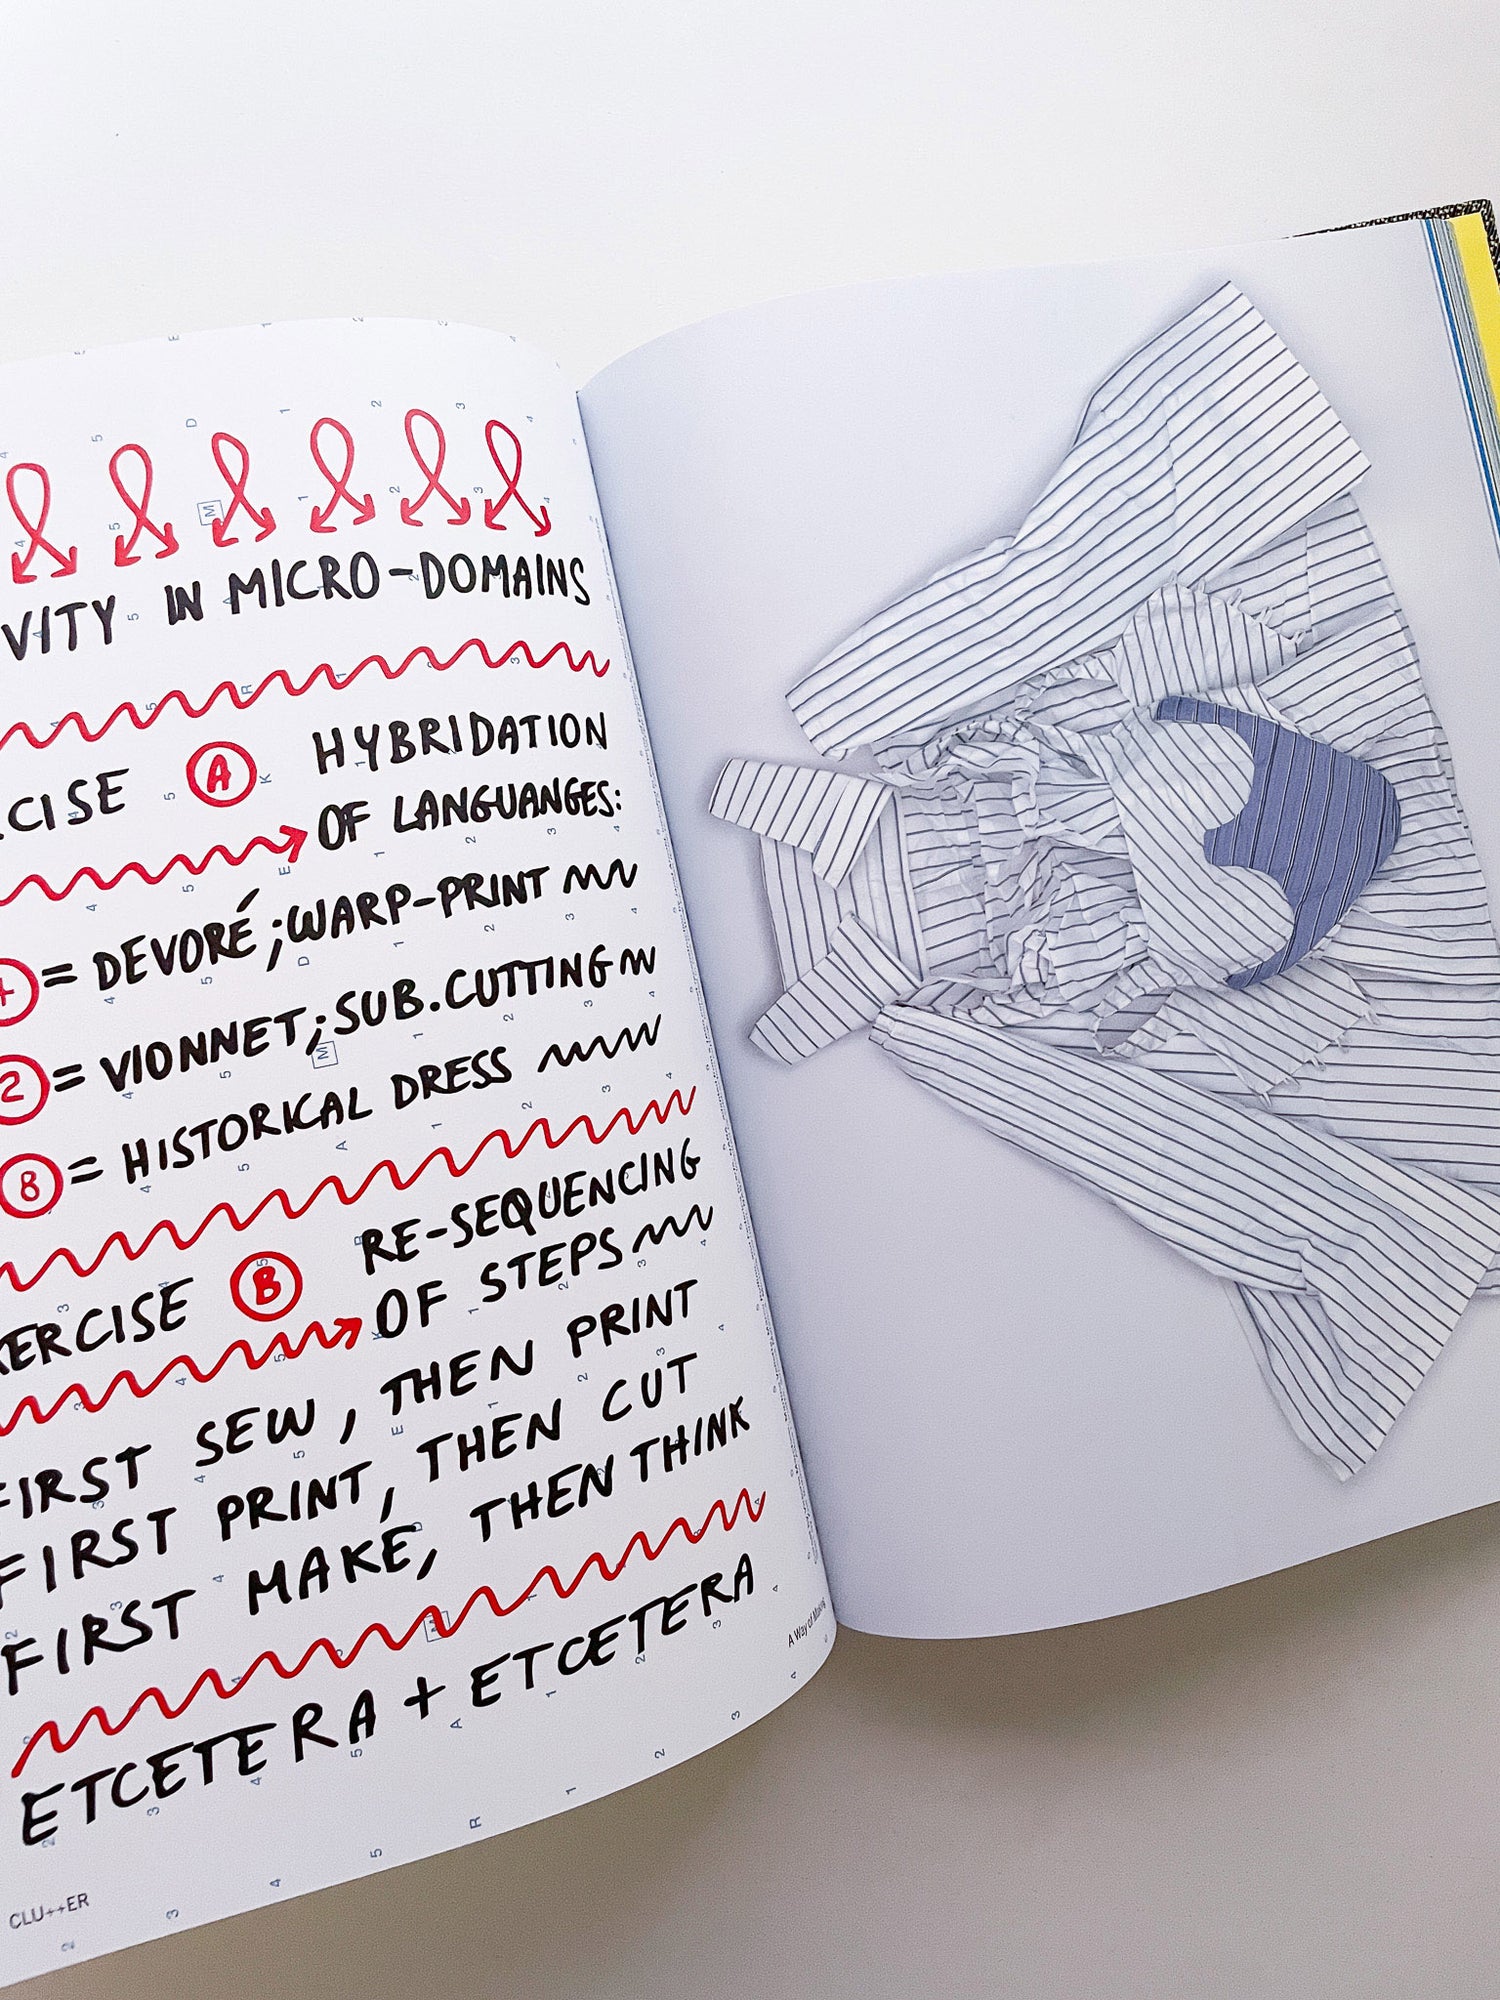 VITY IN MICRO-DOMAINS
CISE A HYBRIDATION
OF LANGUANGES:
= DEVORÉ; WARP-PRINT
2 = VIONNET; SUB.CUTTING
8 = HISTORICAL DRESS
RE-SEQUENCING
ERCISE B OF STEPS
FIRST SEW, THEN PRINT
FIRST PRINT, THEN CUT
FIRST MAKE, THEN THINK
ETCETERA + ETCETERA
CLU++ER
A Way of Making